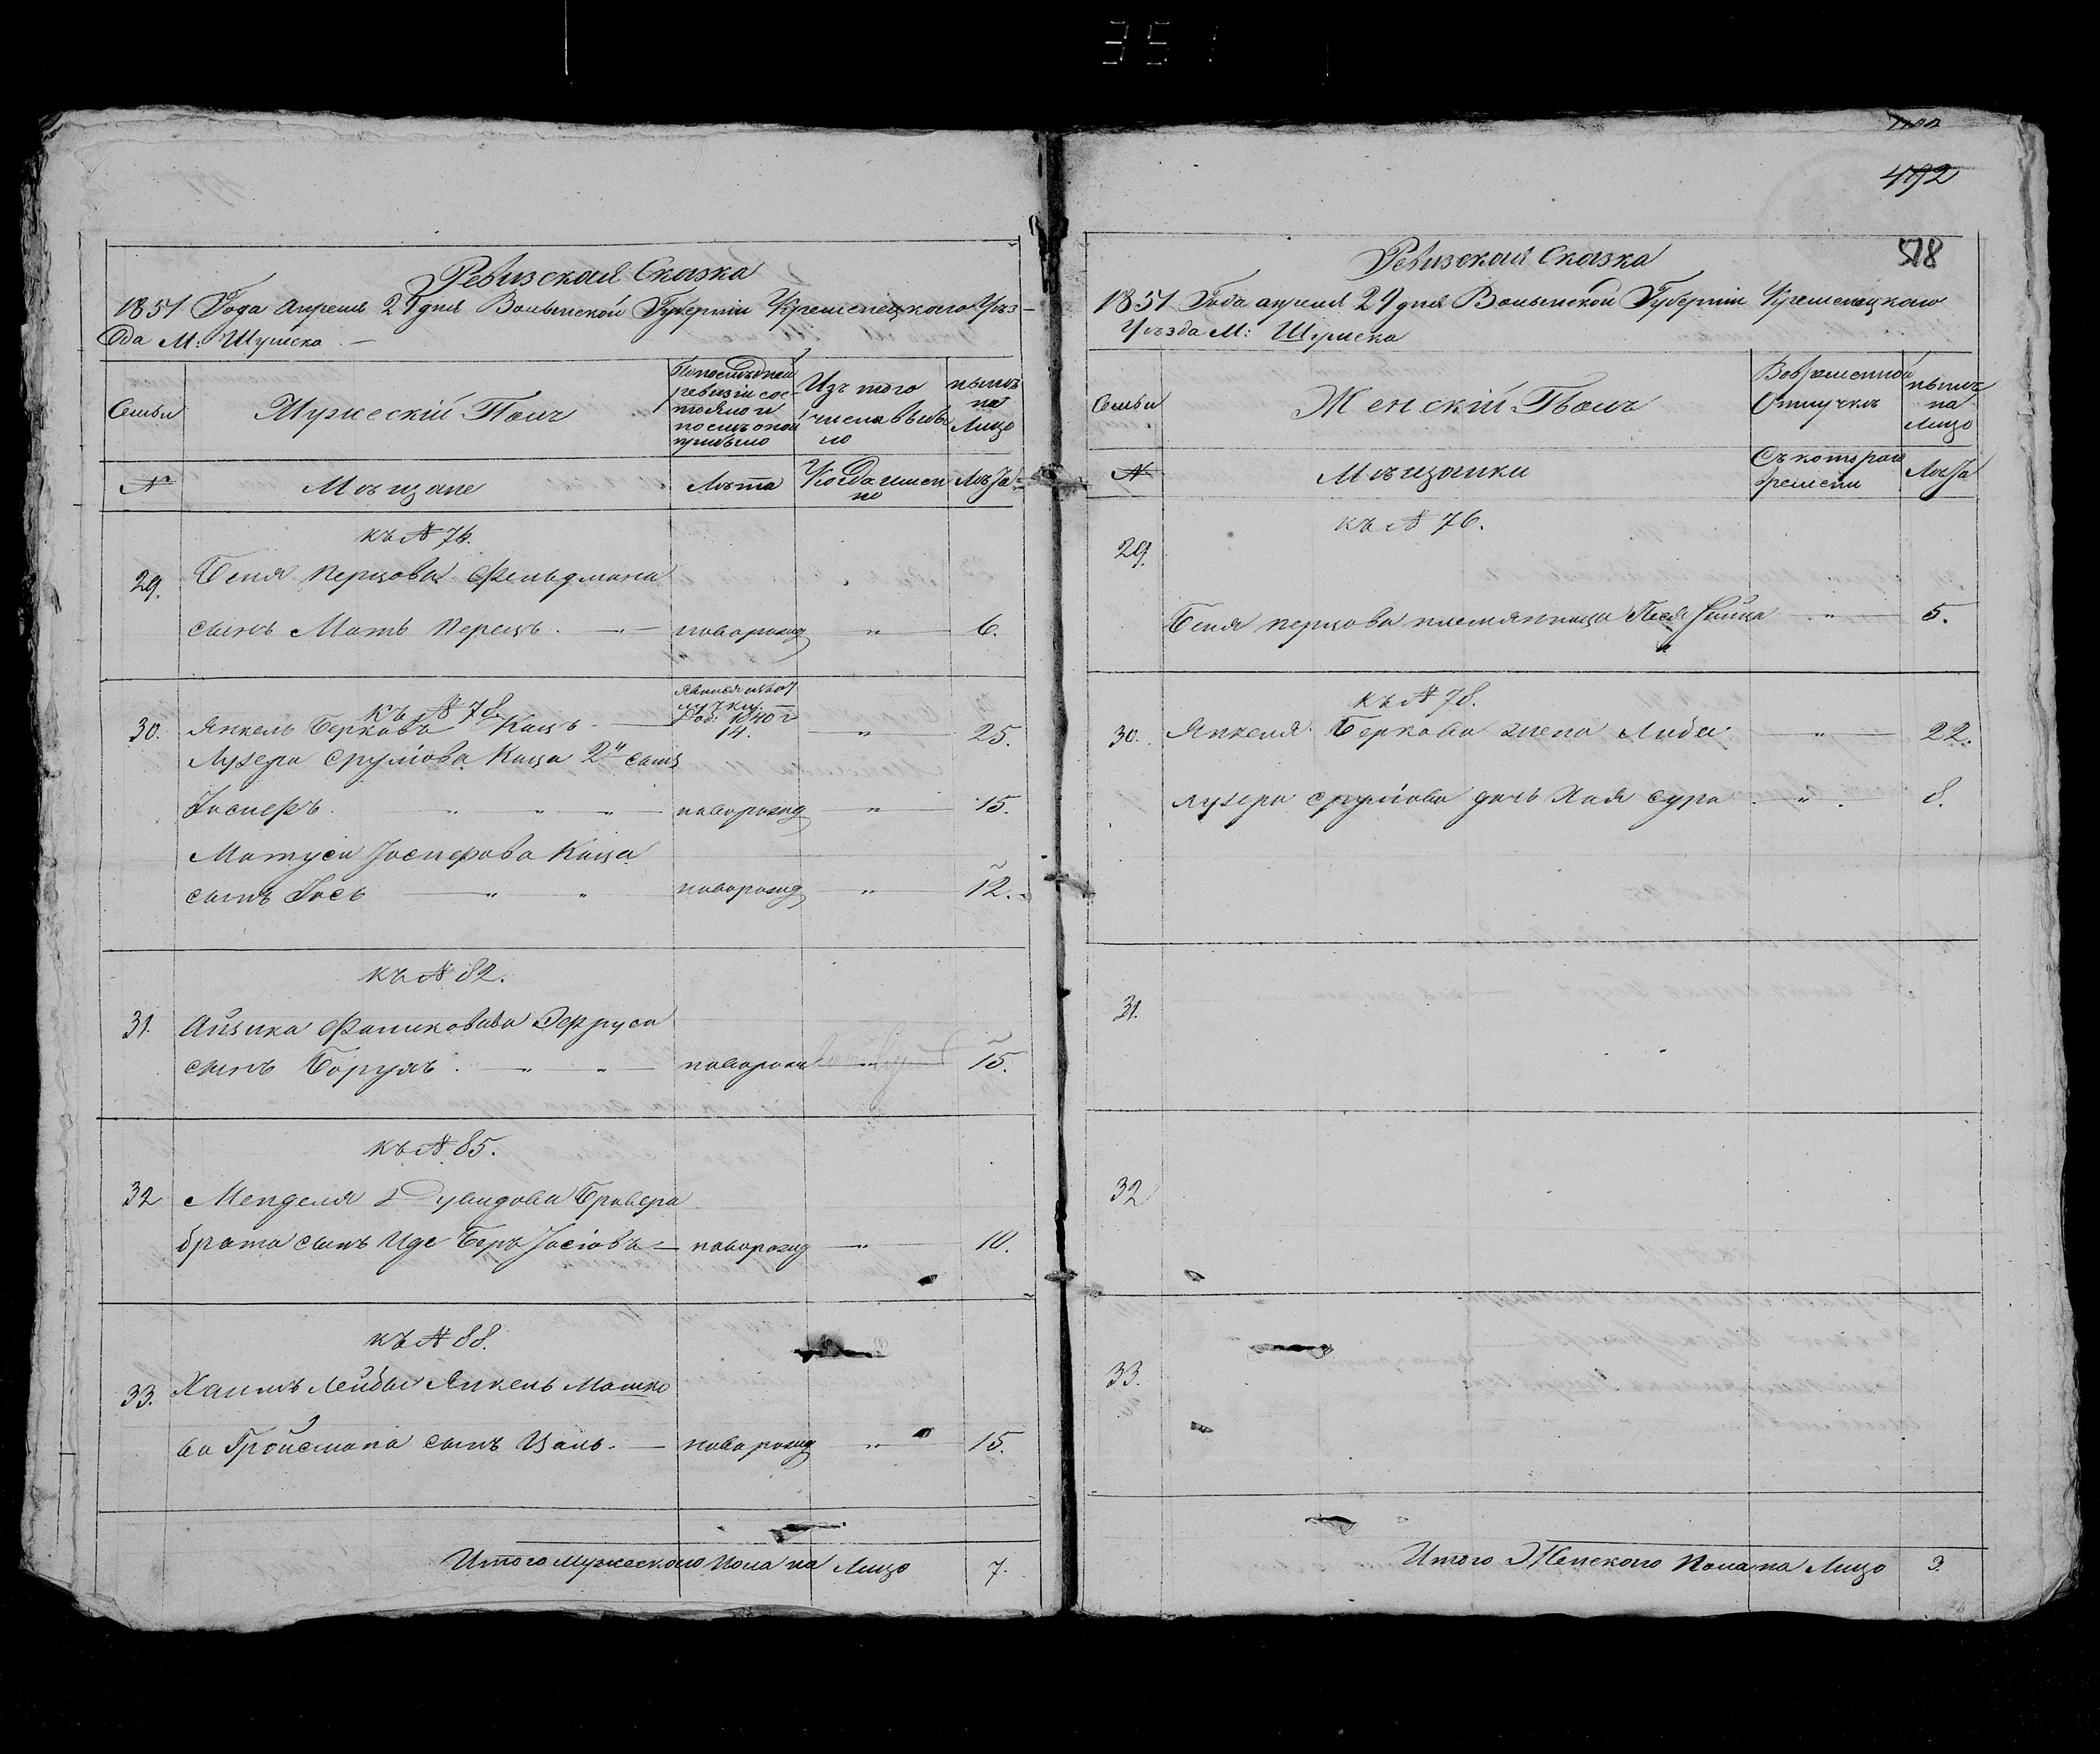 351
492
518
Ревизская Сказка
1851 Года Апреля 27 дня Волынской Губернiи Кременецкаго Уѣз-
да М: Шумска
Семьи
Мужескiй Полъ
По последней ревизiи состояло и после оной прибыло
Изъ того числа выбыло
ныне на Лицо
№
Мѣщане
Лѣта
Когда именно
Лѣта
къ № 76.
29.
Беня Перцова Фельдмана
сынъ Мать Перецъ. новорожд " 6.
къ № 78.
Явился изъ от
лучки.
Роб. 1840 г
30. Янкель Берковъ Кацъ 14. " 25.
Лузера Срулiова Каца 2й сынъ
Iосифъ. новорожд " 15.
Матуса Iосиерова Каца
сынъ Iось новорожд " 12.
къ № 82.
31. Айзика
сынъ Борухъ. 15.
къ № 85.
32 Менделя Дувидова Бравера
брата сынъ Иде Беръ Iосiовъ новорожд " 10.
къ № 88.
33. Хаимъ Лейбы Янкель Мошко
ва Гройсмана сынъ Цаль. новорожд " 15.
Итого мужескаго пола на Лицо 7.
Ревизская Сказка
1851 Года апреля 27 дня Волынской Губернiи Кременецкаго
Уѣзда М: Шумска
Семьи
Женскiй Полъ
Во временной Отлучкѣ
ныне на лицо
№
Мѣщанки
Съ котораго времени
Лѣта
къ № 76.
29.
Беня перцова племянница Песя " 5.
къ № 78.
30. Янкеля Беркова жена Либа " 22.
лузера срулiова дочь Хая сура " 8.
31.
32
33.
Итого Женскаго Пола на Лицо 3.